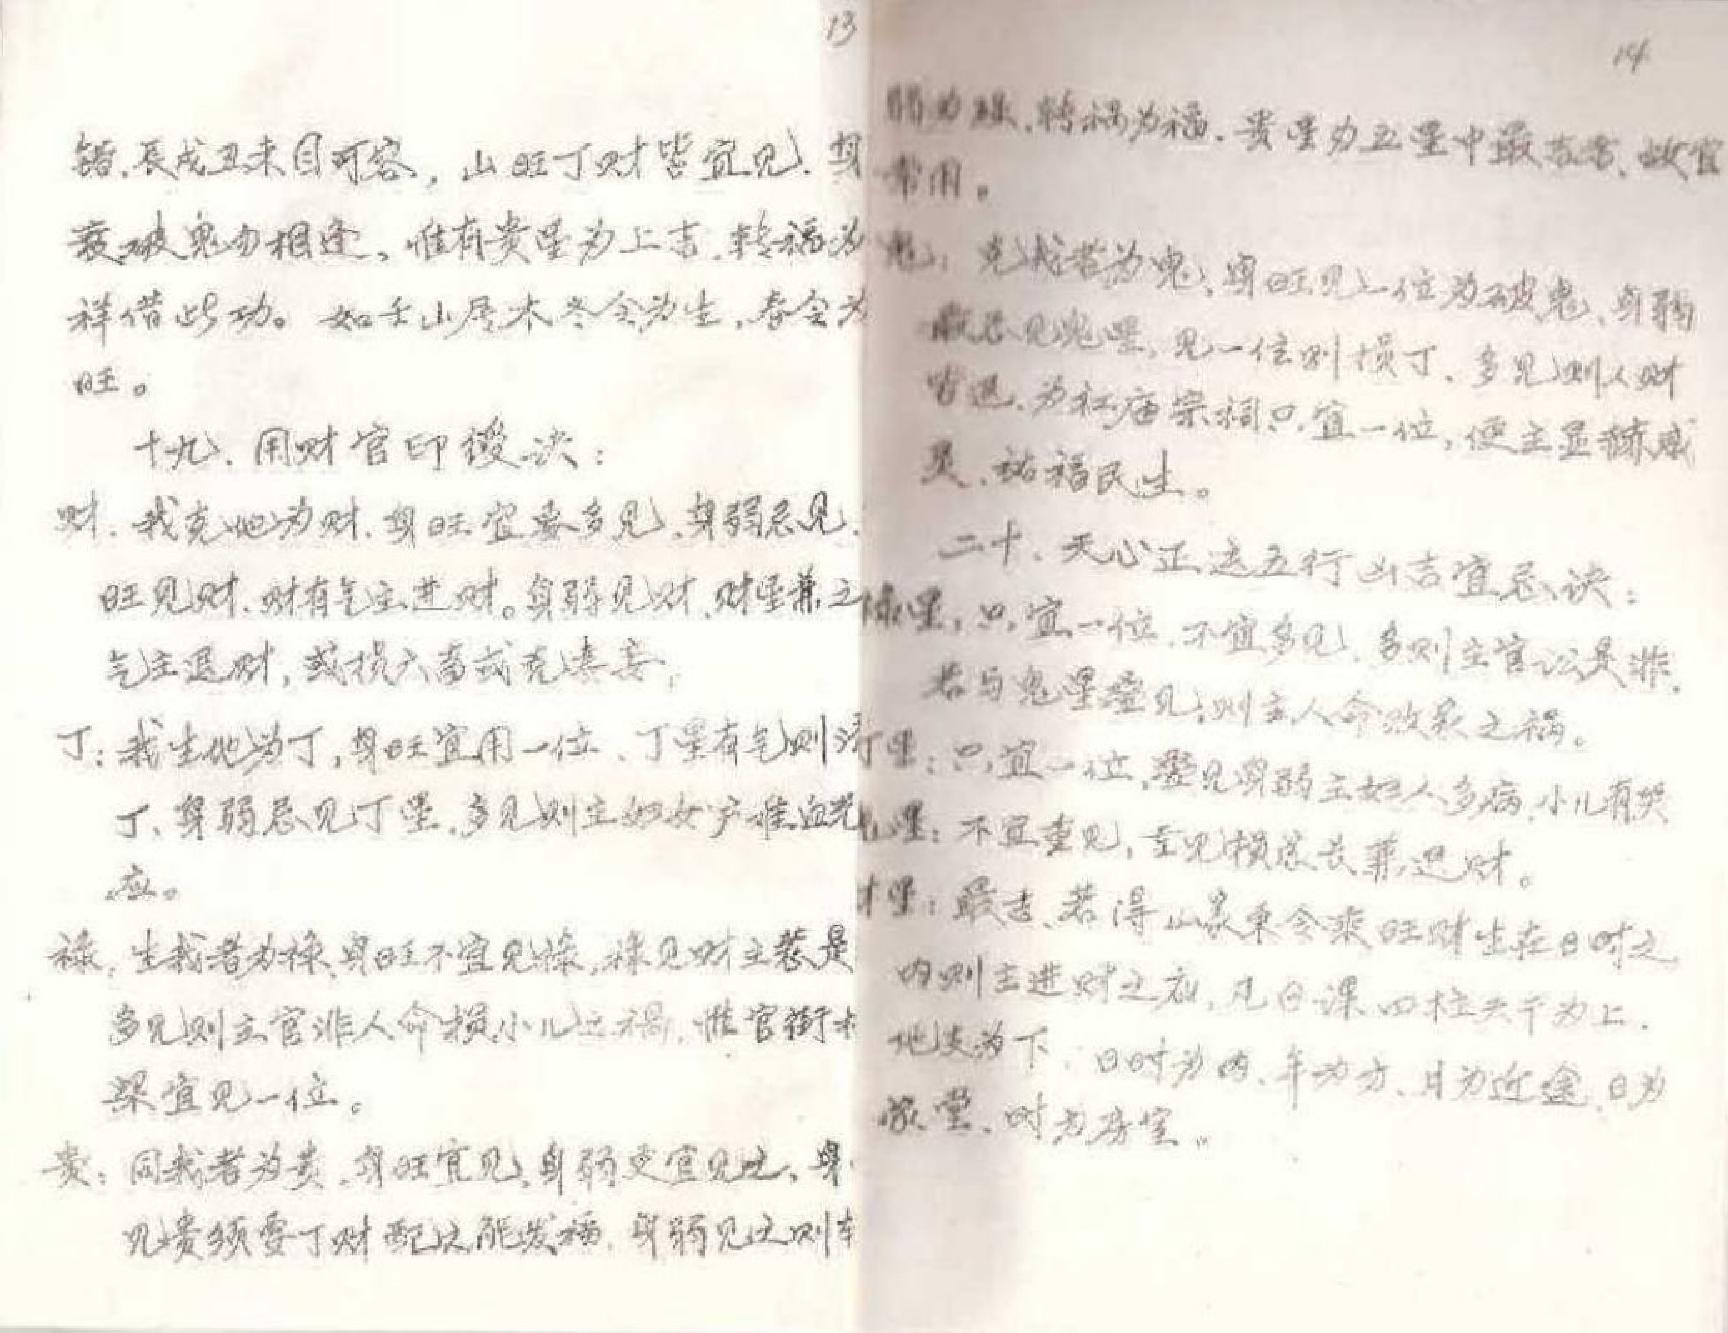 13
错,辰戌丑未目可容,山旺丁财皆宜见.身
衰破鬼勿相逢。惟有贵星为上吉.转福为
祥借此功。如壬山属木冬令为生,春令为
旺。
十九、用财官印诀:
财.我克他为财.身旺宜要多见,身弱忌见.
旺见财.财有气主进财。身弱见财.财星兼之
气主退财,或损六畜或克妻妾;
丁:我生他为丁,身旺宜用一位、丁星有气则添
丁、身弱忌见丁星.多见则主妇女产难血光
应。
禄,生我者为禄,身旺不宜见禄,禄见财主惹是
多见则主官非人命损小儿之祸.惟官衙
梁宜见一位。
贵:同我者为贵.身旺宜见,身弱更宜见之、身
见贵须要丁财配之能发福.身弱见之则转
14
弱为强.转祸为福.贵星为五星中最吉者、故宜
常用。
鬼:克我者为鬼,身旺见一位为破鬼、身弱
最忌见鬼星,见一位则损丁、多见则人财
皆退.为社庙宗祠只宜一位,便主显赫威
灵.祐福民生。
二十.天心正运五行凶吉宜忌诀:
禄星,只宜一位.不宜多见.多则主官讼是非.
若与鬼星叠见,则主人命败家之祸。
丁星:只宜一位,叠见身弱主妇人多病.小儿有哭
鬼星:不宜重见,重见损家长兼退财。
财星:最吉、若得山家乘令乘旺财生在日时之
内则主进财之应,凡日课四柱天干为上.
地支为下.日时为内、年为方、月为近途.日为
家堂、时为房室。